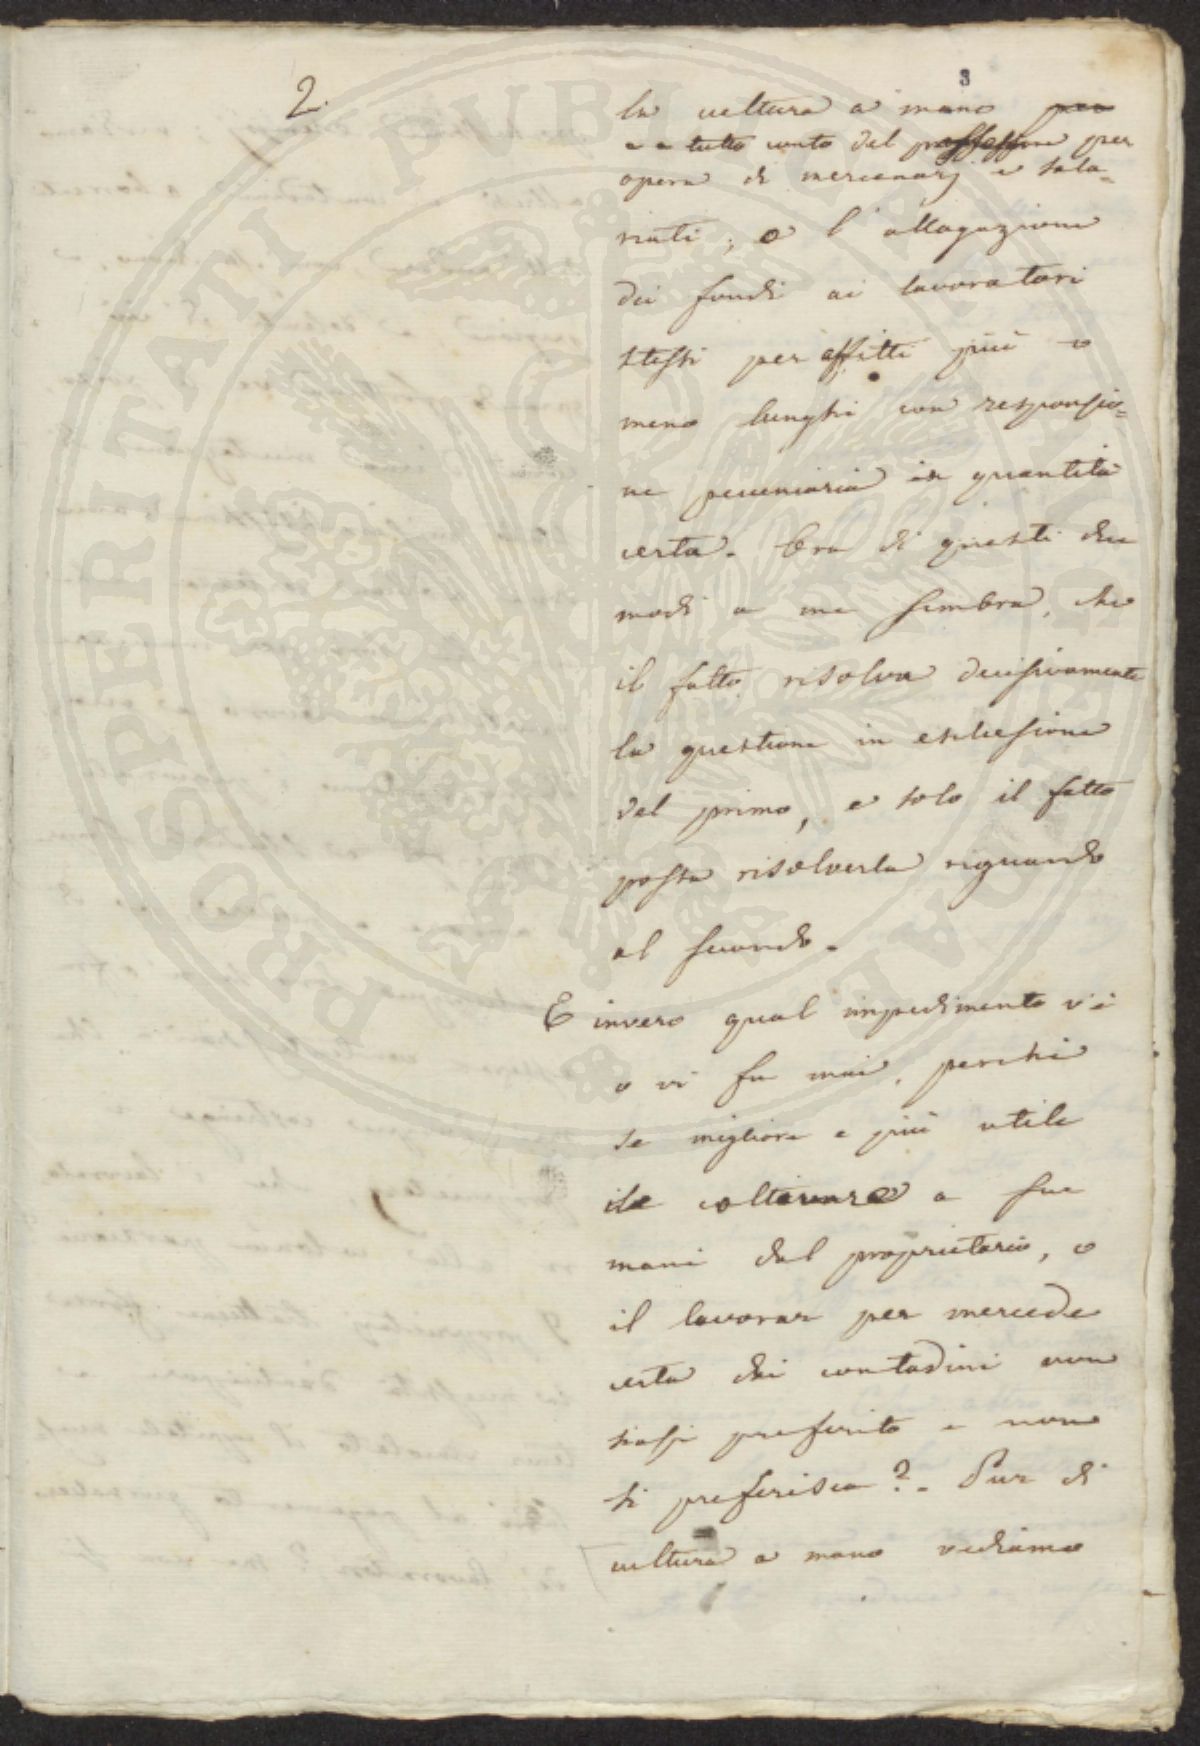 3
2.
la cultura a mano per
e a tutto conto del possessore per
opera di mercenarj e sala=
riati; o l'allogazione
dei fondi ai lavoratori
stessi per affitti più o
meno lunghi con responsio=
ne pecuniaria in quantità
certa. Ora di questi due
modi a me sembra, che
il fatto risolva decisivamente
la questione in esclusione
del primo, e solo il fatto
possa risolverla riguardo
al secondo.
E invero qual impedimento v'è
o vi fu mai, perchè
se migliore e più utile
il coltivare a sue
mani dal proprietario, o
il lavorar per mercede
certa dei contadini non
siasi preferito e non
si preferisca? Pur di
cultura a mano vediamo
PROSPERITATI PUBLICAE AUGENDAE